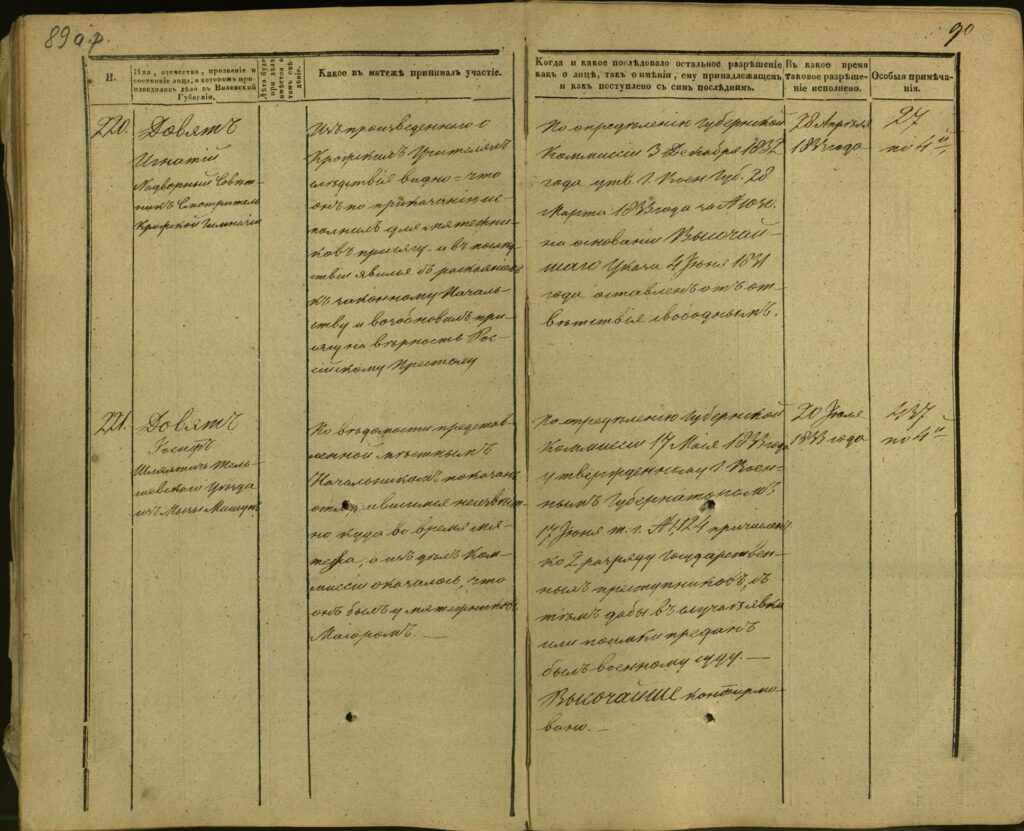 89 а.р.
90
Н.
Имя, отечество, прозваніе и
состояніе лица, о которомъ про-
изводилось дѣло въ Виленской
Губерніи.
Лѣта буде
при дѣлѣ
имѣется о
томъ свѣ-
дѣніе.
Какое въ мятежѣ принималъ участіе.
Когда и какое послѣдовало остальное разрѣшеніе
какъ о лицѣ, такъ о имѣніи, ему принадлежащемъ
и какъ поступлено съ симъ послѣднимъ.
Въ какое время
таковое разрѣше-
ніе исполнено.
Особыя примѣча-
нія.
220.
Довятъ
Игнатій
Надворный Совѣт-
никъ Смотритель
Крожской Гимназіи
Изъ произведеннаго о
Крожскихъ Учителяхъ
слѣдствія видно что
онъ по приказанію ис-
полнилъ для мятежни-
ковъ присягу а въ послѣд-
ствіи явился съ раскаяніемъ
къ законному Началь-
ству и возобновилъ при-
сягу на вѣрность Рос-
сійскому Престолу
По опредѣленію Губернской
Коммисіи 3 Декабря 1832
года утв. Г. Воен. Губ. 28
Марта 1833 года за № 1030.
на основаніи Высочай-
шаго Указа 4 Іюня 1831
года оставленъ отъ от-
вѣтствія свободнымъ.
28 Апрѣля
1833 года
27
по 4й
221.
Довятъ
Іосифъ
Шляхтичъ Тель-
шевскаго Уѣзда
изъ
По вѣдомости представ-
ленной мѣстнымъ
Начальникомъ показанъ
неизвѣст-
но куда во время мя-
тежа, а изъ дѣлъ Ком-
миссіи оказалось, что
онъ былъ у мятежниковъ
Маіоромъ.
По опредѣленію Губернской
Коммисіи 17 Мая 1833 года
утвержденному Г. Воен-
нымъ Губернаторомъ
17 Іюня т. г. № 1,124 причисленъ
ко 2 разряду Государствен-
ныхъ преступниковъ, съ
тѣмъ дабы въ случаѣ явки
или поимки преданъ
былъ военному суду.—
Высочайше конфирмо-
вано.—
20 Іюля
1833 года
237
по 4й